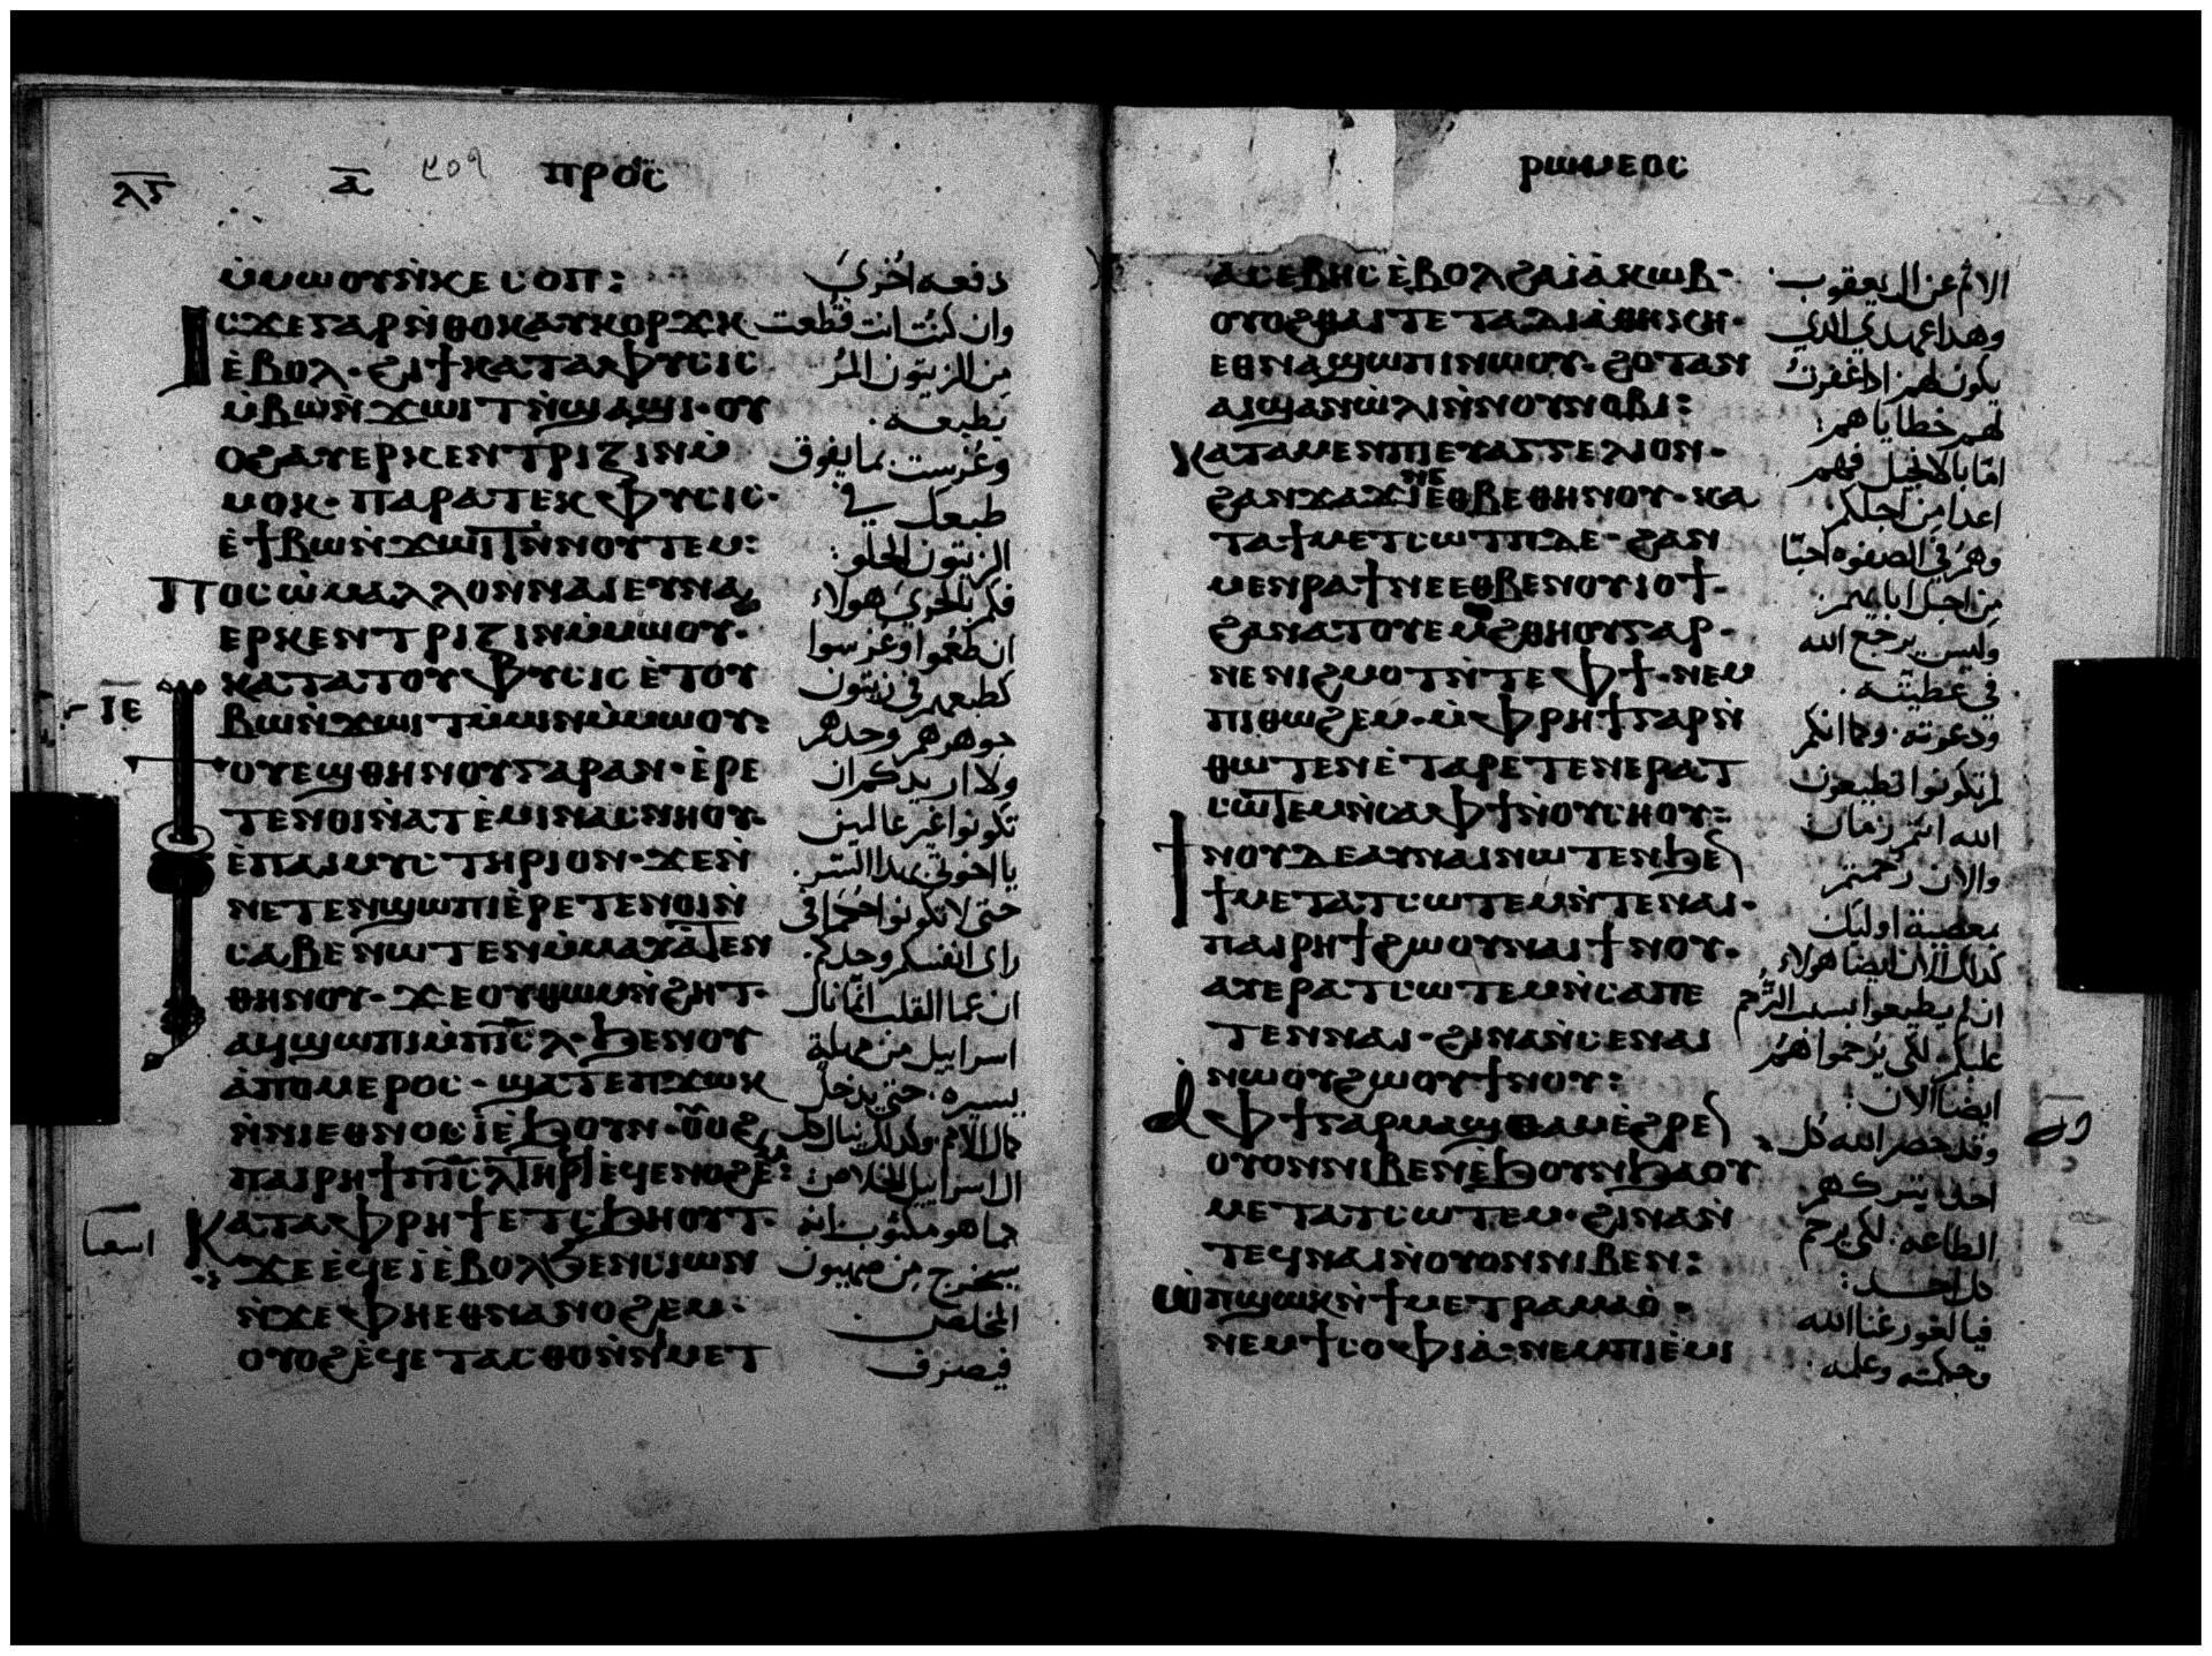 ⲗⲋ ⲁ ⲡⲣⲟⲥ
ⲙ̀ⲙⲱⲟⲩ ⲛ̀ⲕⲉⲥⲟⲡ:
ⲓⲥϫⲉ ⲅⲁⲣ ⲛ̀ⲑⲟⲕ ⲁⲩⲕⲟⲣϫⲕ
ⲉ̀ⲃⲟⲗ· ϩⲓ ϯⲕⲁⲧⲁ ⲫⲩⲥⲓⲥ
ⲙ̀ⲃⲱ ⲛ̀ϫⲱⲓⲧ ⲛ̀ϣⲁϣⲓ· ⲟⲩ
ⲟϩ ⲁⲩⲉⲣⲕⲉⲛⲧⲣⲓⲍⲓⲛ ⲙ̀
ⲙⲟⲕ· ⲡⲁⲣⲁ ⲧⲉⲕⲫⲩⲥⲓⲥ·
ⲉ̀ϯⲃⲱ ⲛ̀ϫⲱⲓⲧ ⲛ̀ⲛⲟⲩⲧⲉⲙ:
ⲡⲟⲥⲱ ⲙⲁⲗⲗⲟⲛ ⲛⲁⲓ ⲉⲩⲛⲁ
ⲉⲣⲕⲉⲛⲧⲣⲓⲍⲓⲛ ⲙ̀ⲙⲱⲟⲩ·
ⲕⲁⲧⲁ ⲧⲟⲩⲫⲩⲥⲓⲥ ⲉ̀ⲧⲟⲩ
ⲓⲉ
ⲃⲱ ⲛ̀ϫⲱⲓⲧ ⲙ̀ⲙⲓⲛ ⲙ̀ⲙⲱⲟⲩ:
ϯⲟⲩⲉϣ ⲑⲏⲛⲟⲩ ⲅⲁⲣ ⲁⲛ· ⲉ̀ⲣⲉ
ⲧⲉⲛⲟⲓ ⲛ̀ⲁⲧⲉ̀ⲙⲓ ⲛⲁⲥⲛⲏⲟⲩ·
ⲉ̀ⲡⲁⲓⲙⲩⲥⲧⲏⲣⲓⲟⲛ· ϫⲉ ⲛ̀
ⲛⲉⲧⲉⲛϣⲱⲡⲓ ⲉ̀ⲣⲉⲧⲉⲛⲟⲓ ⲛ̀
ⲥⲁⲃⲉ ⲛⲱⲧⲉⲛ ⲙ̀ⲙⲁⲩⲁⲧⲉⲛ
ⲑⲏⲛⲟⲩ· ϫⲉ ⲟⲩⲑⲱⲙ ⲛ̀ϩⲏⲧ·
ⲁϥϣⲱⲡⲓ ⲙ̀ⲡⲓⲥⲗ· ϧⲉⲛ ⲟⲩ
ⲁ̀ⲡⲟⲙⲉⲣⲟⲥ· ϣⲁⲧⲉ ⲡϫⲱⲕ
ⲛ̀ⲛⲓⲉⲑⲛⲟⲥ ⲓ̀ ⲉ̀ϧⲟⲩⲛ· ⲟⲩⲟϩ
ⲡⲁⲓⲣⲏϯ ⲡⲓⲥⲗ ⲧⲏⲣϥ ⲉϥⲉⲛⲟϩⲉⲙ:
ⲕⲁⲧⲁ ⲫⲣⲏϯ ⲉⲧⲥϧⲏⲟⲩⲧ·
ϫⲉ ⲉϥⲉⲓ̀ ⲉ̀ⲃⲟⲗ ϧⲉⲛ ⲥⲓⲱⲛ
ⲛ̀ϫⲉ ⲫⲏ ⲉⲑⲛⲁⲛⲟϩⲉⲙ·
ⲟⲩⲟϩ ⲉ̀ϥⲉⲧⲁⲥⲑⲟ ⲛ̀ⲛⲓⲙⲉⲧ
دفعه اخرى
وان كنت انت قطعت
من الزيتون المر
بطبعه.
وغرست بما يفوق
طبعك في
الزيتون الحلو:
فكم بالحري هولاء
ان طعموا وغرسوا
كطبعهم في زيتون
جوهرهم وحدهم
ولا اريدكم ان
تكونوا غير عالمين
يا اخوتي بهذا السر.
حتى لا تكونوا حكما في
راى انفسكم وحدكم.
ان عما القلب انما نال
اسراييل من جهلة
يسيره. حتى يدخل
كمال الامم وكذلك ينال كل
ال اسراييل الخلاص:
كما هو مكتوب انه
سيخرج من صهيون
المخلص
فيصرف
اسعيا
ⲣⲱⲙⲉⲟⲥ
ⲁⲥⲉⲃⲏⲥ ⲉ̀ⲃⲟⲗ ϩⲁ ⲓⲁ̀ⲕⲱⲃ·
ⲟⲩⲟϩ ⲑⲁⲓ ⲧⲉ ⲧⲁⲇⲓⲁ̀ⲑⲏⲕⲏ·
ⲉⲑⲛⲁϣⲱⲡⲓ ⲛⲱⲟⲩ· ϩⲟⲧⲁⲛ
ⲁⲓϣⲁⲛⲱ̀ⲗⲓ ⲛ̀ⲛⲟⲩⲛⲟⲃⲓ:
ⲕⲁⲧⲁ ⲙⲉⲛ ⲡⲓⲉⲩⲁⲅⲅⲉⲗⲓⲟⲛ·
ϩⲁⲛϫⲁϫⲓ ⲛⲉ ⲉⲑⲃⲉ ⲑⲏⲛⲟⲩ· ⲕⲁ
ⲧⲁ ϯⲙⲉⲧⲥⲱⲧⲡ ⲇⲉ· ϩⲁⲛ
ⲙⲉⲛⲣⲁϯ ⲛⲉ ⲉⲑⲃⲉ ⲛⲟⲩⲓⲟϯ·
ϩⲁⲛⲁⲧⲟⲩⲉⲙϩⲑⲏⲟⲩ ⲅⲁⲣ·
ⲛⲉ ⲛⲓϩⲙⲟⲧ ⲛ̀ⲧⲉ ⲫϯ· ⲛⲉⲙ
ⲡⲓⲑⲱϩⲉⲙ· ⲙ̀ⲫⲣⲏϯ ⲅⲁⲣ ⲛ̀
ⲑⲱⲧⲉⲛ ⲉ̀ⲧⲁⲣⲉⲧⲉⲛⲉⲣⲁⲧ
ⲥⲱⲧⲉⲙ ⲛ̀ⲥⲁ ⲫϯ ⲛ̀ⲟⲩⲥⲏⲟⲩ:
ϯⲛⲟⲩ ⲇⲉ ⲁⲩⲛⲁⲓ ⲛⲱⲧⲉⲛ ϧⲉⲛ
ϯⲙⲉⲧⲁⲧⲥⲱⲧⲉⲙ ⲛ̀ⲧⲉ ⲛⲁⲓ·
ⲡⲁⲓⲣⲏϯ ϩⲱⲟⲩ ⲛⲁⲓ ϯⲛⲟⲩ·
ⲁⲩⲉⲣⲁⲧⲥⲱⲧⲉⲙ ⲛ̀ⲥⲁ ⲡⲉ
ⲧⲉⲛⲛⲁⲓ· ϩⲓⲛⲁ ⲛ̀ⲥⲉⲛⲁⲓ
ⲛⲱⲟⲩ ϩⲱⲟⲩ ϯⲛⲟⲩ:
ⲁ ⲫϯ ⲅⲁⲣ ⲙⲁϣⲑⲁⲙ ⲉ̀ϩⲣⲉⲛ
ⲟⲩⲟⲛ ⲛⲓⲃⲉⲛ ⲉ̀ϧⲟⲩⲛ ϧⲁ ⲟⲩ
ⲙⲉⲧⲁⲧⲥⲱⲧⲉⲙ· ϩⲓⲛⲁ ⲛ̀
ⲧⲉϥⲛⲁⲓ ⲛ̀ⲟⲩⲟⲛ ⲛⲓⲃⲉⲛ:
ⲱ̀ ⲡϣⲱⲕ ⲛ̀ϯⲙⲉⲧⲣⲁⲙⲁⲟ̀·
ⲛⲉⲙ ϯⲥⲟⲫⲓⲁ̀· ⲛⲉⲙ ⲡⲓⲉ̀ⲙⲓ
الاثم عن ال يعقوب
وهذا عهدي الذي
يكون لهم اذا غفرت
لهم خطاياهم:
اما بالانجيل فهم
اعدا من اجلكم
وهم في الصفوه احبا
من اجل ابايهم:
وليس يرجع الله
في عطيته.
ودعوته. وكما انكم
لم تكونوا تطيعون
الله انتم زمان
والان رحمتم
بمعصية اوليك
كذلك الان ايضا هولاء
ان لم يطيعوا بسبب الترحم
عليكم لكي يرحموا هم
ايضا الان:
وقد حصر الله كل
احد
الطاعه. لكي يرحم
كل احد:
فيا لغور غنا الله
وحكمته وعلمه.